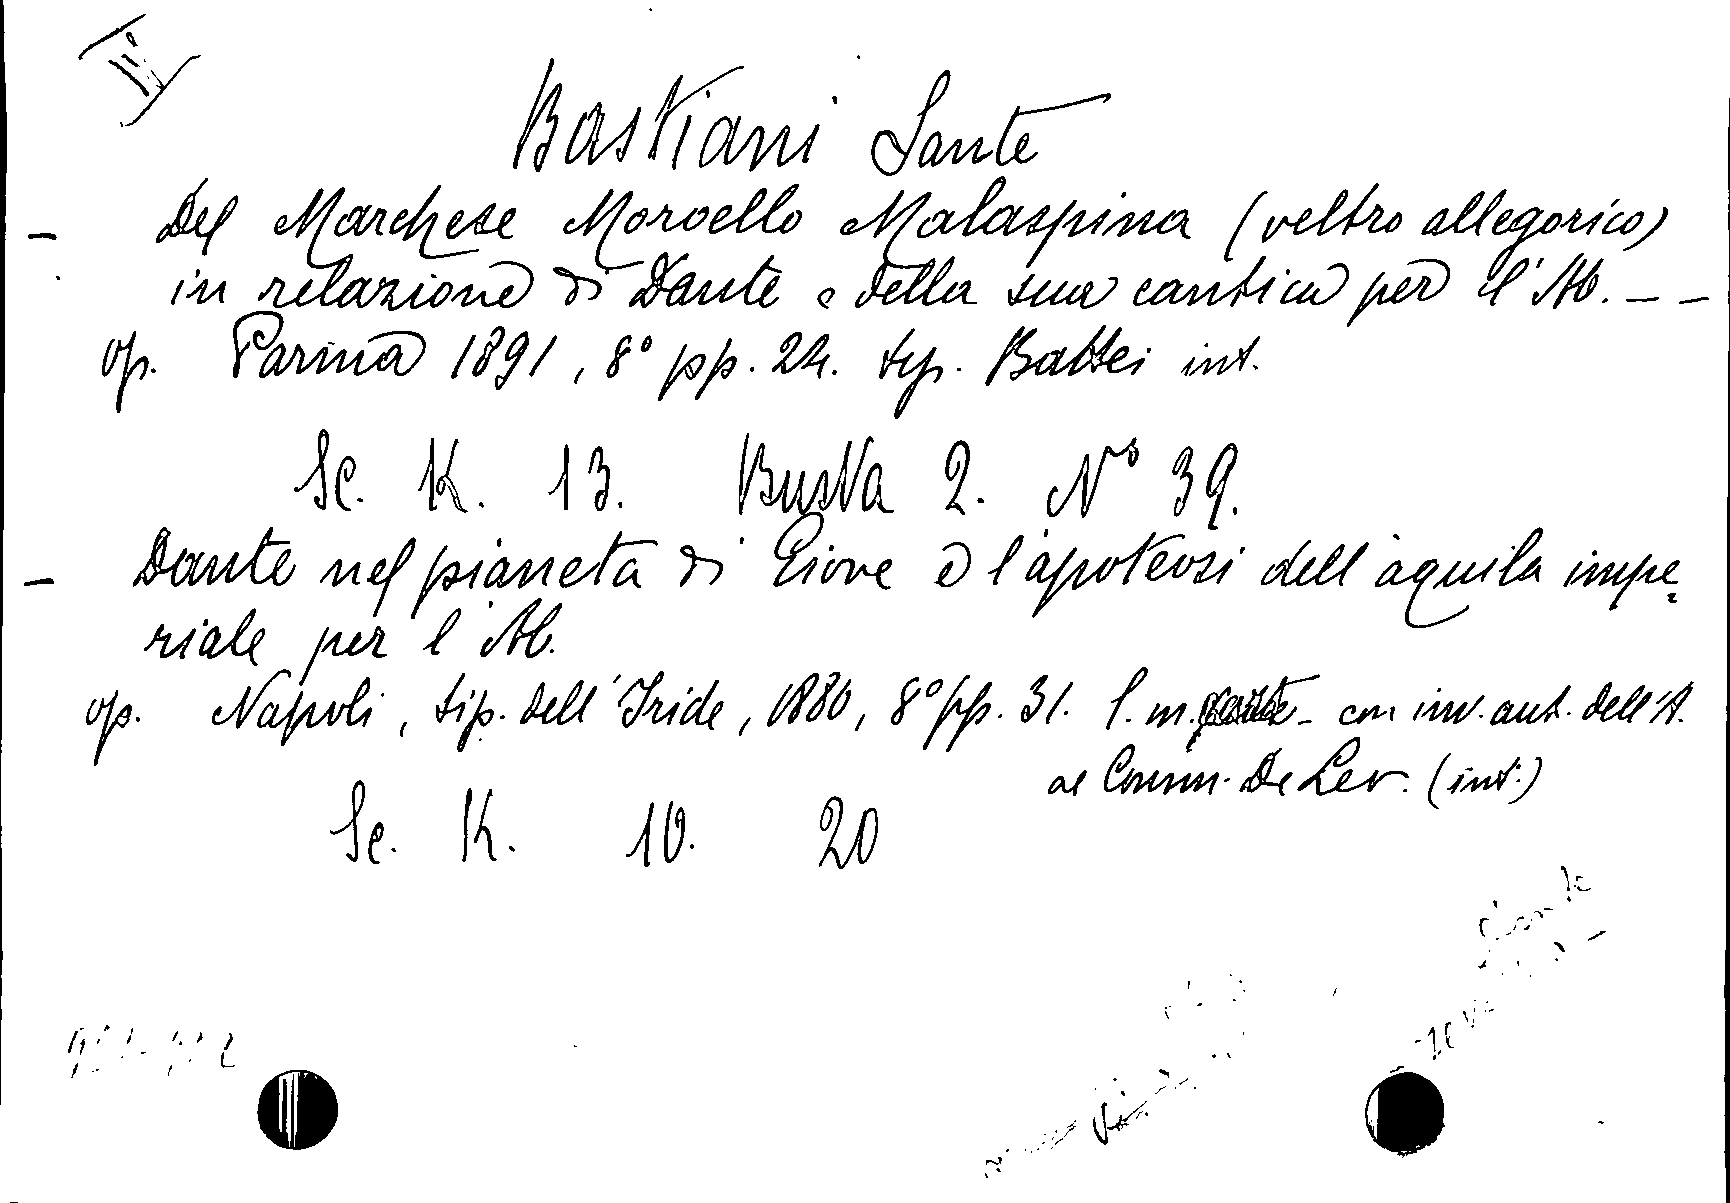 II
Bastiani Sante
- Del Marchese Moroello Malaspina (veltro allegorico)
in relazione di Dante e della sua cantica per l'Ab. - -
op. Parma 1891, 8° pp. 24. tip. Battei int.
Sc. K. 13. Busta 2. N° 39.
- Dante nel pianeta di Giove e l'apoteosi dell'aquila impe-
riale per l'Ab.
op. Napoli, tip. dell'Iride, 1880, 8° pp. 31. l. m. - con inv. aut. dell'A.
al Comm. De Lev. (int.)
Sc. K. 10. 20